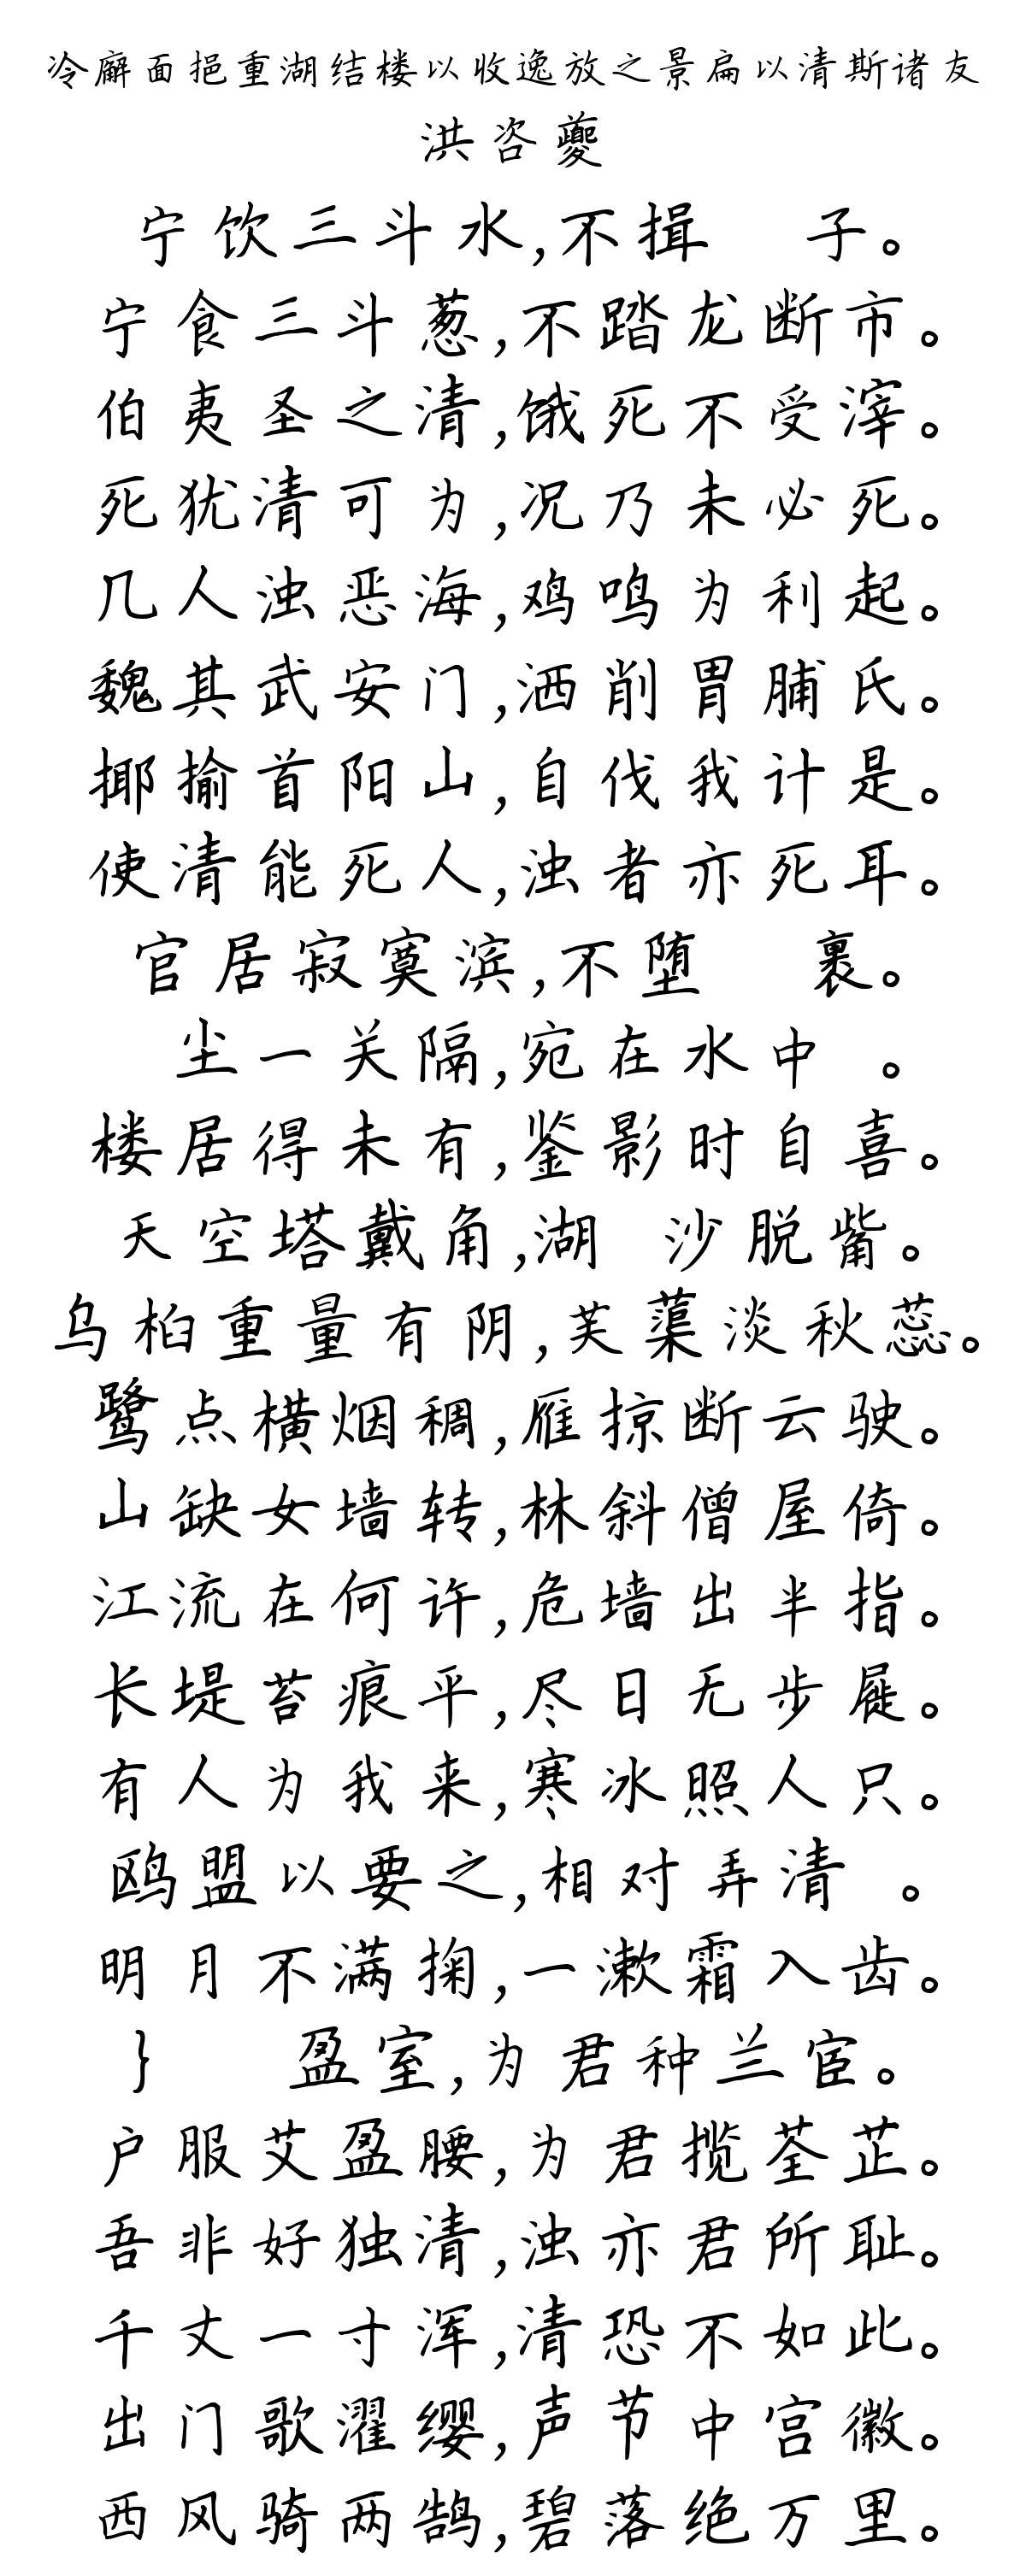 冷廨面挹重湖结楼以收逸放之景扁以清斯诸友
洪咨夔
宁饮三斗水,不揖 子。
宁食三斗葱,不踏龙断市。
伯夷圣之清,饿死不受滓。
死犹清可为,况乃未必死。
几人浊恶海,鸡鸣为利起。
魏其武安门,洒削胃脯氏。
揶揄首阳山,自伐我计是。
使清能死人,浊者亦死耳。
官居寂寞滨,不堕 裹。
尘一关隔,宛在水中 。
楼居得未有,鉴影时自喜。
天空塔戴角,湖 沙脱觜。
乌桕重量有阴,芙蕖淡秋蕊。
鹭点横烟稠,雁掠断云驶。
山缺女墙转,林斜僧屋倚。
江流在何许,危墙出半指。
长堤苔痕平,尽日无步屣。
有人为我来,寒冰照人只。
鸥盟以要之,相对弄清 。
明月不满掬,一漱霜入齿。
} 盈室,为君种兰宧。
户服艾盈腰,为君揽荃芷。
吾非好独清,浊亦君所耻。
千丈一寸浑,清恐不如此。
出门歌濯缨,声节中宫徽。
西风骑两鹄,碧落绝万里。